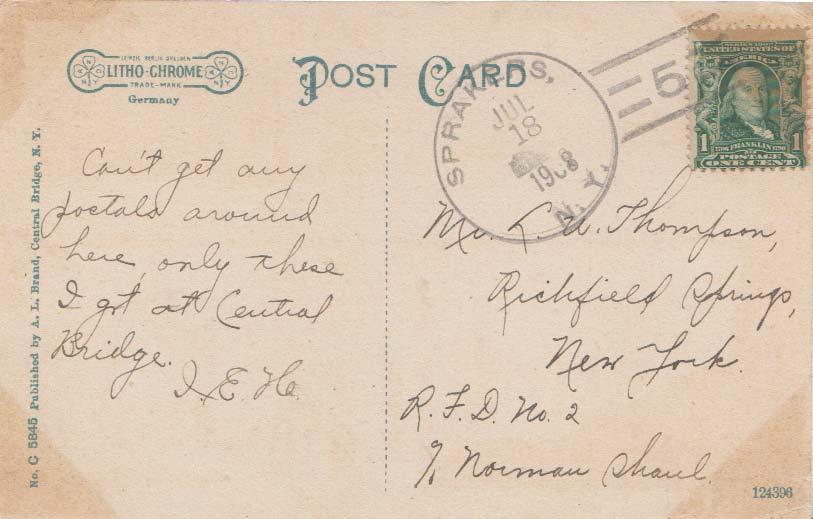 LEIPZIG BERLIN DRESDEN
LITHO-CHROME
TRADE-MARK
Germany
POST CARD
SPRAKERS,
JUL
18
1908
N. Y.
5
SERIES 1902
UNITED STATES OF
AMERICA
1 FRANKLIN 1
POSTAGE
ONE CENT
No. C 5845 Published by A. L. Brand, Central Bridge, N. Y.
Can't get any
postals around
here, only these
I got at Central
Bridge.
I. E. H.
Mr. L. U. Thompson,
Richfield Springs,
New York.
R. F. D. No. 2
% Norman Shaul.
124396